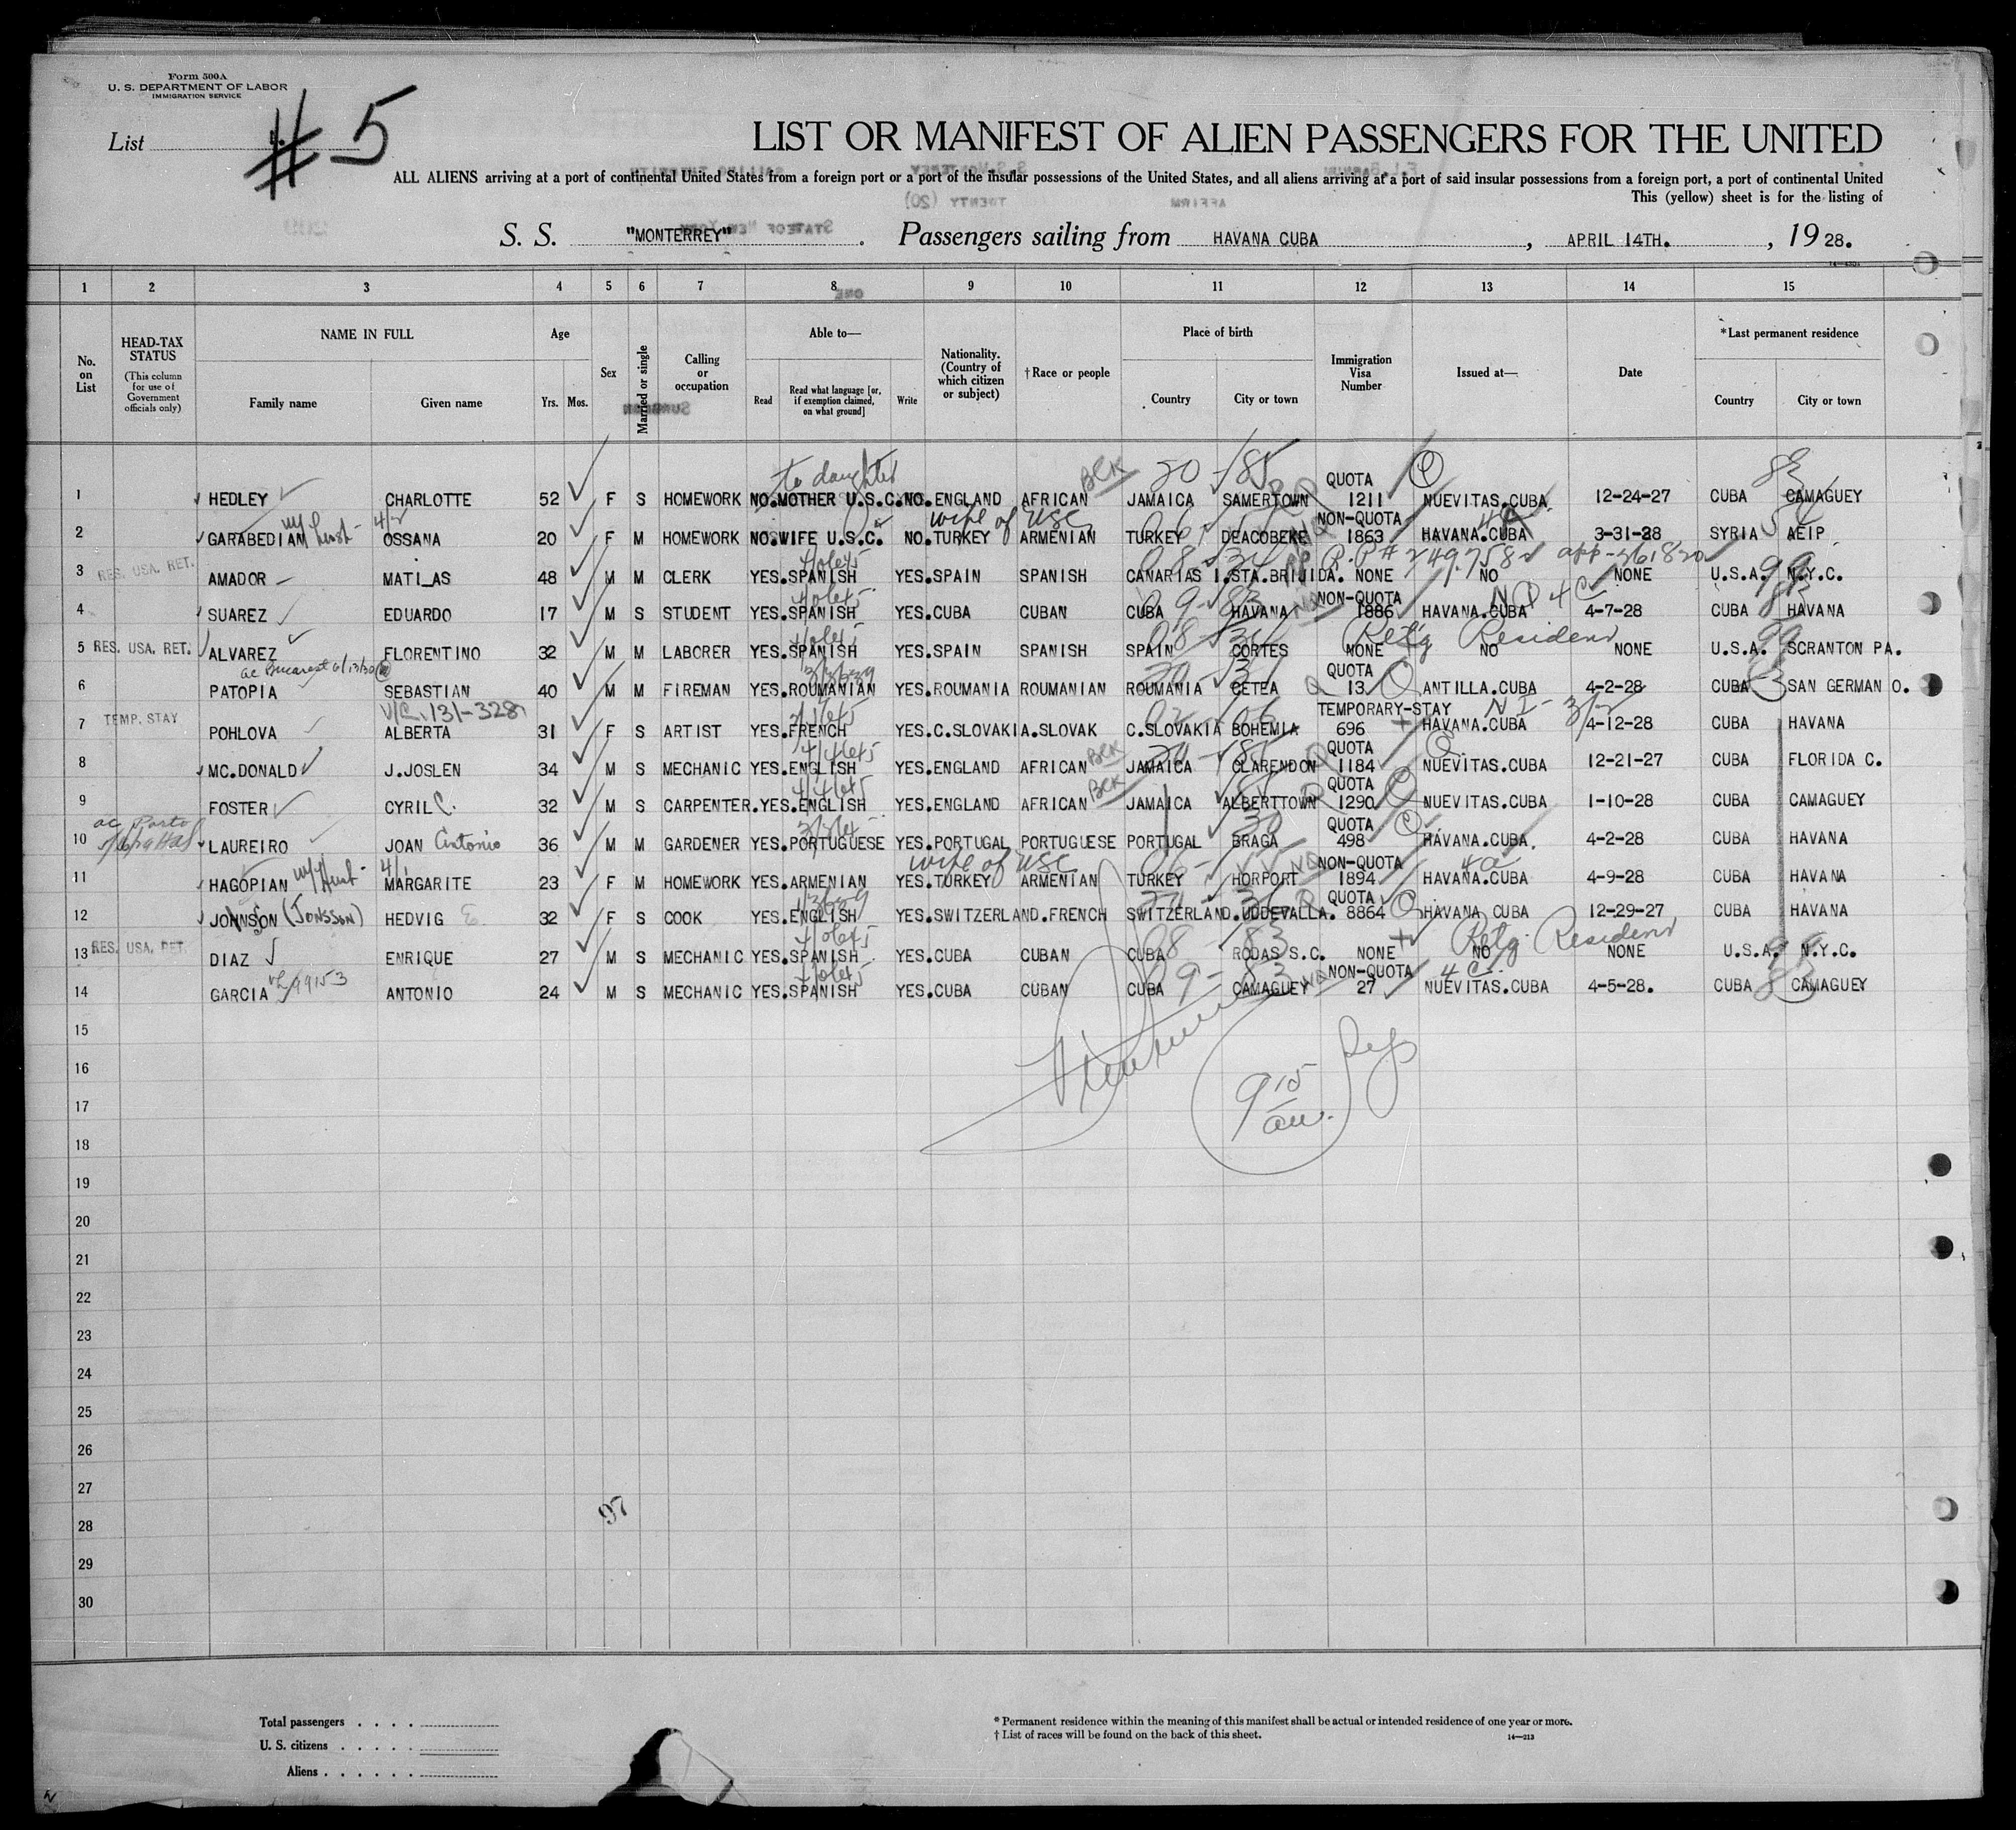 Form 500A
U. S. DEPARTMENT OF LABOR
IMMIGRATION SERVICE
List 1.
# 5
LIST OR MANIFEST OF ALIEN PASSENGERS FOR THE UNITED
ALL ALIENS arriving at a port of continental United States from a foreign port or a port of the insular possessions of the United States, and all aliens arriving at a port of said insular possessions from a foreign port, a port of continental United
This (yellow) sheet is for the listing of
S. S. "MONTERREY" . Passengers sailing from HAVANA CUBA , APRIL 14TH. , 19 28.
1 2 3 4 5 6 7 8 9 10 11 12 13 14 15
No. on List
HEAD-TAX STATUS (This column for use of Government officials only)
NAME IN FULL
Family name Given name
Age
Yrs. Mos.
Sex
Married or single
Calling or occupation
Able to—
Read
Read what language [or, if exemption claimed, on what ground]
Write
Nationality. (Country of which citizen or subject)
† Race or people
Place of birth
Country City or town
Immigration Visa Number
Issued at—
Date
* Last permanent residence
Country City or town
to daughter BLK 20 - 85 QUOTA 83
1 HEDLEY CHARLOTTE 52 F S HOMEWORK NO. MOTHER U.S.C. NO. ENGLAND AFRICAN JAMAICA SAMERTOWN 1211 NUEVITAS.CUBA 12-24-27 CUBA CAMAGUEY
wife of USC NON-QUOTA
2 GARABEDIAN OSSANA 20 F M HOMEWORK NO. WIFE U.S.C. NO. TURKEY ARMENIAN TURKEY DEACOBEKE 1863 HAVANA.CUBA 3-31-28 SYRIA AEIP
RES. USA. RET.
3 AMADOR MATI_AS 48 M M CLERK YES. SPANISH YES. SPAIN SPANISH CANARIAS I. STA.BRIJIDA. NONE NO NONE U.S.A. N.Y.C.
NON-QUOTA
4 SUAREZ EDUARDO 17 M S STUDENT YES. SPANISH YES. CUBA CUBAN CUBA HAVANA 1886 HAVANA.CUBA 4-7-28 CUBA HAVANA
Retg Resident
5 RES. USA. RET. ALVAREZ FLORENTINO 32 M M LABORER YES. SPANISH YES. SPAIN SPANISH SPAIN CORTES NONE NO NONE U.S.A. SCRANTON PA.
QUOTA
6 PATOPIA SEBASTIAN 40 M M FIREMAN YES. ROUMANIAN YES. ROUMANIA ROUMANIAN ROUMANIA CETEA 13 ANTILLA.CUBA 4-2-28 CUBA SAN GERMAN O.
V/C. 131-328 TEMPORARY-STAY
7 TEMP. STAY POHLOVA ALBERTA 31 F S ARTIST YES. FRENCH YES. C.SLOVAKIA. SLOVAK C.SLOVAKIA BOHEMIA 696 HAVANA.CUBA 4-12-28 CUBA HAVANA
BLK QUOTA
8 MC.DONALD J.JOSLEN 34 M S MECHANIC YES. ENGLISH YES. ENGLAND AFRICAN JAMAICA CLARENDON 1184 NUEVITAS.CUBA 12-21-27 CUBA FLORIDA C.
BLK QUOTA
9 FOSTER CYRIL C. 32 M S CARPENTER. YES. ENGLISH YES. ENGLAND AFRICAN JAMAICA ALBERTTOWN 1290 NUEVITAS.CUBA 1-10-28 CUBA CAMAGUEY
QUOTA
10 LAUREIRO JOAN Antonio 36 M M GARDENER YES. PORTUGUESE YES. PORTUGAL PORTUGUESE PORTUGAL BRAGA 498 HAVANA.CUBA. 4-2-28 CUBA HAVANA
wife of USC NON-QUOTA
11 HAGOPIAN MARGARITE 23 F M HOMEWORK YES. ARMENIAN YES. TURKEY ARMENIAN TURKEY HORPORT 1894 HAVANA.CUBA 4-9-28 CUBA HAVANA
QUOTA
12 JOHNSON (JONSSON) HEDVIG E 32 F S COOK YES. ENGLISH YES. SWITZERLAND. FRENCH SWITZERLAND. UDDEVALLA. 8864 HAVANA CUBA 12-29-27 CUBA HAVANA
Retg. Resident
13 RES. USA. RET. DIAZ ENRIQUE 27 M S MECHANIC YES. SPANISH YES. CUBA CUBAN CUBA RODAS S.C. NONE NO NONE U.S.A. N.Y.C.
NON-QUOTA 4 C.
14 GARCIA ANTONIO 24 M S MECHANIC YES. SPANISH YES. CUBA CUBAN CUBA CAMAGUEY 27 NUEVITAS.CUBA 4-5-28. CUBA CAMAGUEY
15
16
17
18
19
20
21
22
23
24
25
26
27
28
29
30
9 15
am.
97
Total passengers . . . .
U. S. citizens . . . . .
Aliens . . . . . .
* Permanent residence within the meaning of this manifest shall be actual or intended residence of one year or more.
† List of races will be found on the back of this sheet.
14—213